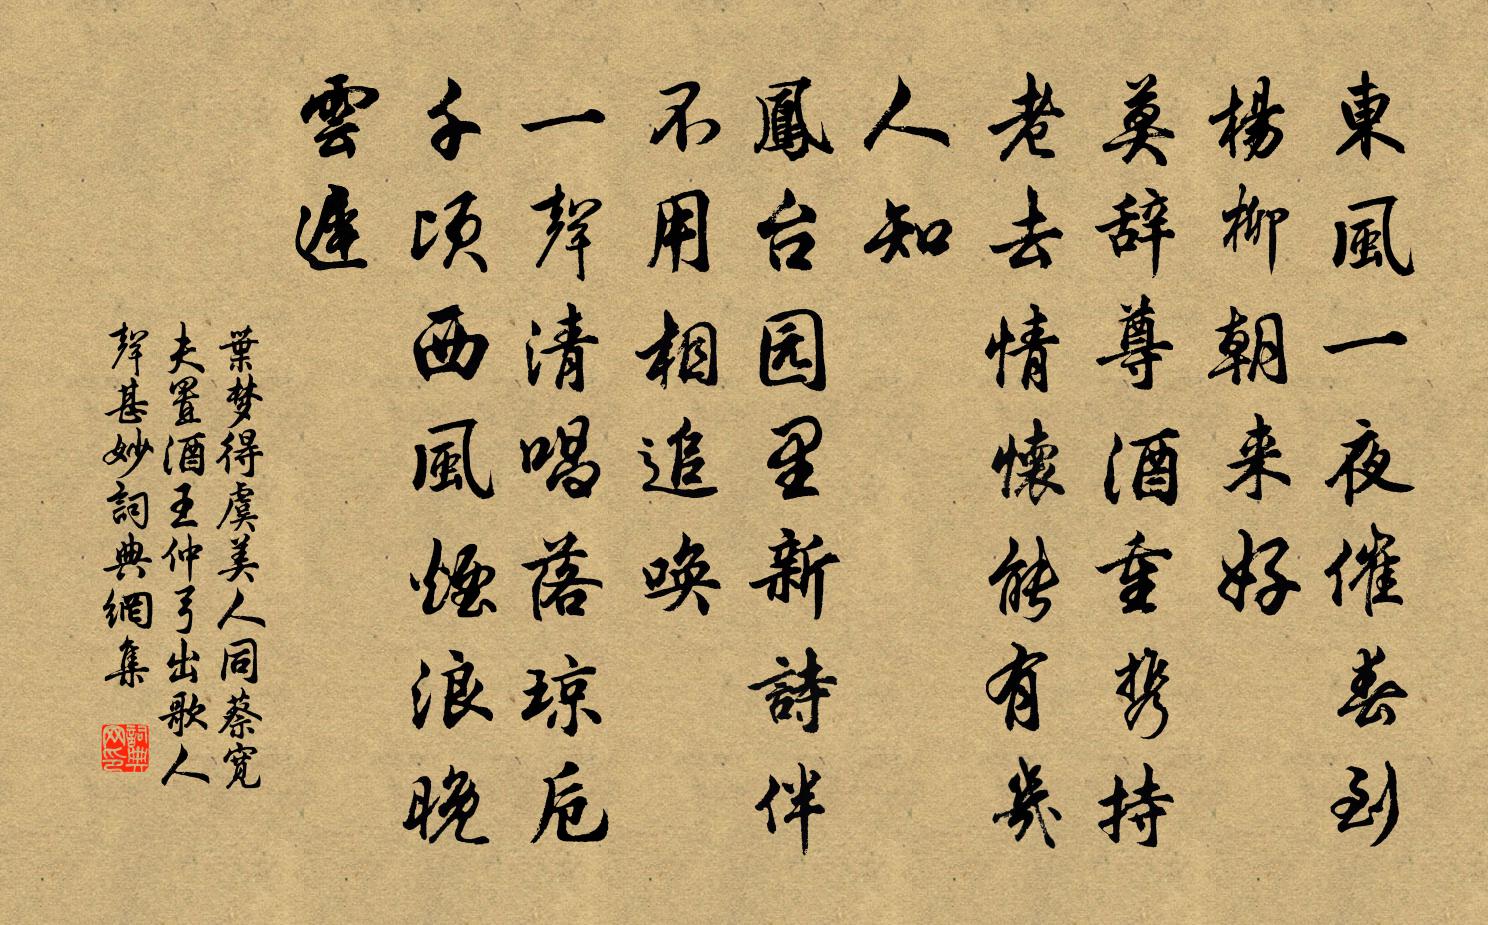 東風一夜催春到
楊柳朝来好
莫辞尊酒重携持
老去情懷能有幾
人知
鳳台园里新詩伴
不用相追唤
一聲清唱落琼卮
千顷西風煙浪晚
雲遲
葉梦得虞美人同蔡寬
夫置酒王仲弓出歌人
聲甚妙詞典網集
詞典
网印